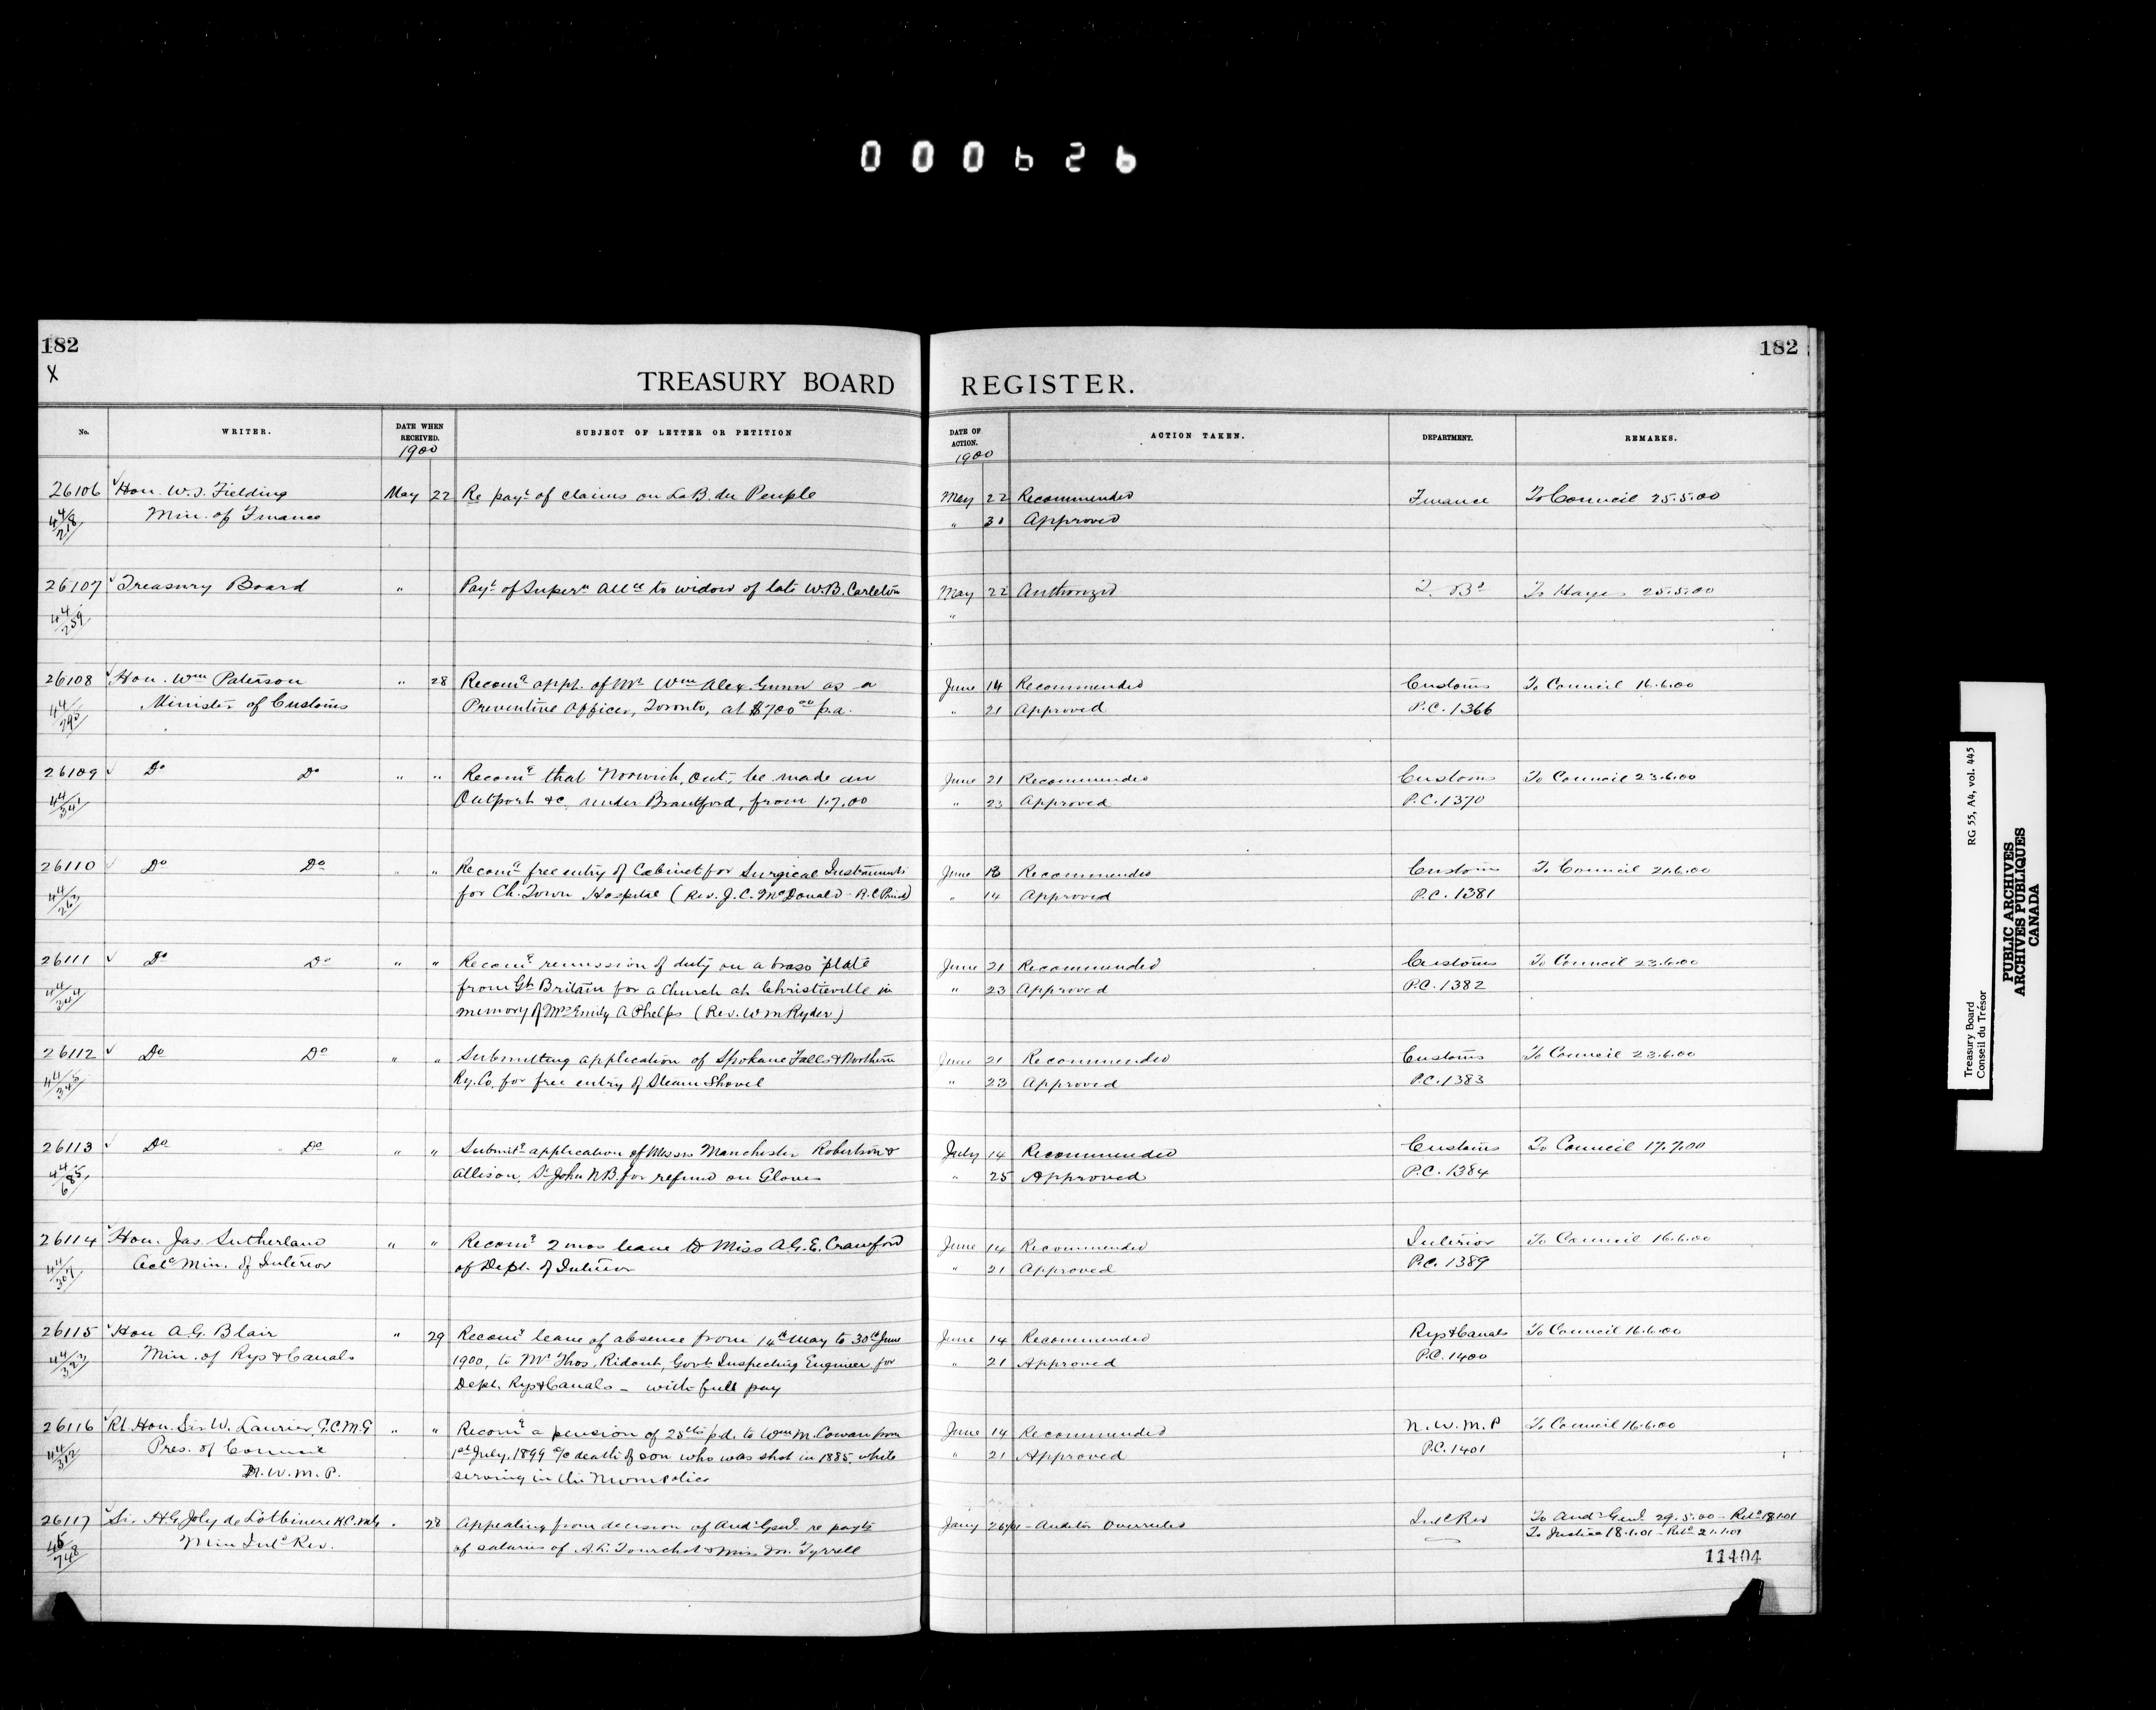 000626
182
182
X
TREASURY BOARD REGISTER.
No. WRITER. DATE WHEN RECEIVED. SUBJECT OF LETTER OR PETITION DATE OF ACTION. ACTION TAKEN. DEPARTMENT. REMARKS.
1900 1900
26106 Hon. W.S. Fielding May 22 Re payt of claims on La B. du Peuple May 22 Recommended Finance To Council 25.5.00
44/218 Min. of Finance " 30 Approved
26107 Treasury Board " Payt of Supern Allce to widow of late W.B. Carleton May 22 Authorized T. Bd To Hayes 25.5.00
44/259 "
26108 Hon. Wm Paterson " 28 Recomg appt. of Mr Wm Alex. Gunn as a June 14 Recommended Customs To Council 16.6.00
44/295 Minister of Customs Preventive Officer, Toronto, at $700 00 p.a. " 21 Approved P.C. 1366
26109 Do Do " " Recomg that Norwich, Ont, be made an June 21 Recommended Customs To Council 23.6.00
44/341 Outport &c, under Brantford, from 1.7.00 " 23 Approved P.C. 1370
26110 Do Do " " Recomg free entry of Cabinet for Surgical Instruments June 13 Recommended Customs To Council 21.6.00
44/263 for Ch. Town Hospital (Rev. J.C. McDonald - R.C. Priest) " 14 Approved P.C. 1381
26111 Do Do " " Recomg remission of duty on a brass plate June 21 Recommended Customs To Council 23.6.00
44/344 from Gt Britain for a Church at Christieville in " 23 Approved P.C. 1382
memory of Mrs Emily A Phelps (Rev. W m Ryder)
26112 Do Do " " Submitting application of Spokane Falls & Northern June 21 Recommended Customs To Council 23.6.00
44/345 Ry. Co. for free entry of Steam Shovel " 23 Approved P.C. 1383
26113 Do Do " " Submitg application of Messrs Manchester Robertson & July 14 Recommended Customs To Council 17.7.00
44/685 Allison, St John N.B. for refund on Gloves " 25 Approved P.C. 1384
26114 Hon. Jas. Sutherland " " Recomg 2 mos leave to Miss A.G.E. Crawford June 14 Recommended Interior To Council 16.6.00
44/307 Actg Min. of Interior of Dept. of Interior " 21 Approved P.C. 1389
26115 Hon A.G. Blair " 29 Recomg leave of absence from 14th May to 30th June June 14 Recommended Rys & Canals To Council 16.6.00
44/323 Min. of Rys & Canals 1900, to Mr Thos. Ridout, Govt Inspecting Engineer for " 21 Approved P.C. 1400
Dept. Rys & Canals - with full pay
26116 Rt. Hon. Sir W. Laurier, G.C.M.G " " Recomg a pension of 25cts p.d. to Wm M. Cowan from June 14 Recommended N.W.M.P To Council 16.6.00
44/312 Pres. of Council 1st July, 1899 a/c death of son who was shot in 1885, while " 21 Approved P.C. 1401
N.W.M.P. serving in the N W M Police
26117 Sir H.G. Joly de Lotbiniere K.C.M.G " 28 Appealing from decision of Audr Genl. re payts Jany 26/01 - Auditor Overruled Inld Rev To Audr Genl. 29.5.00 - Retd 18.1.01
45/748 Min Inld Rev. of salaries of & Miss M. Tyrrell To Justice 18.1.01 - Retd 21.1.01
11404
Treasury Board RG 55, A4, vol. 445
Conseil du Trésor
PUBLIC ARCHIVES
ARCHIVES PUBLIQUES
CANADA